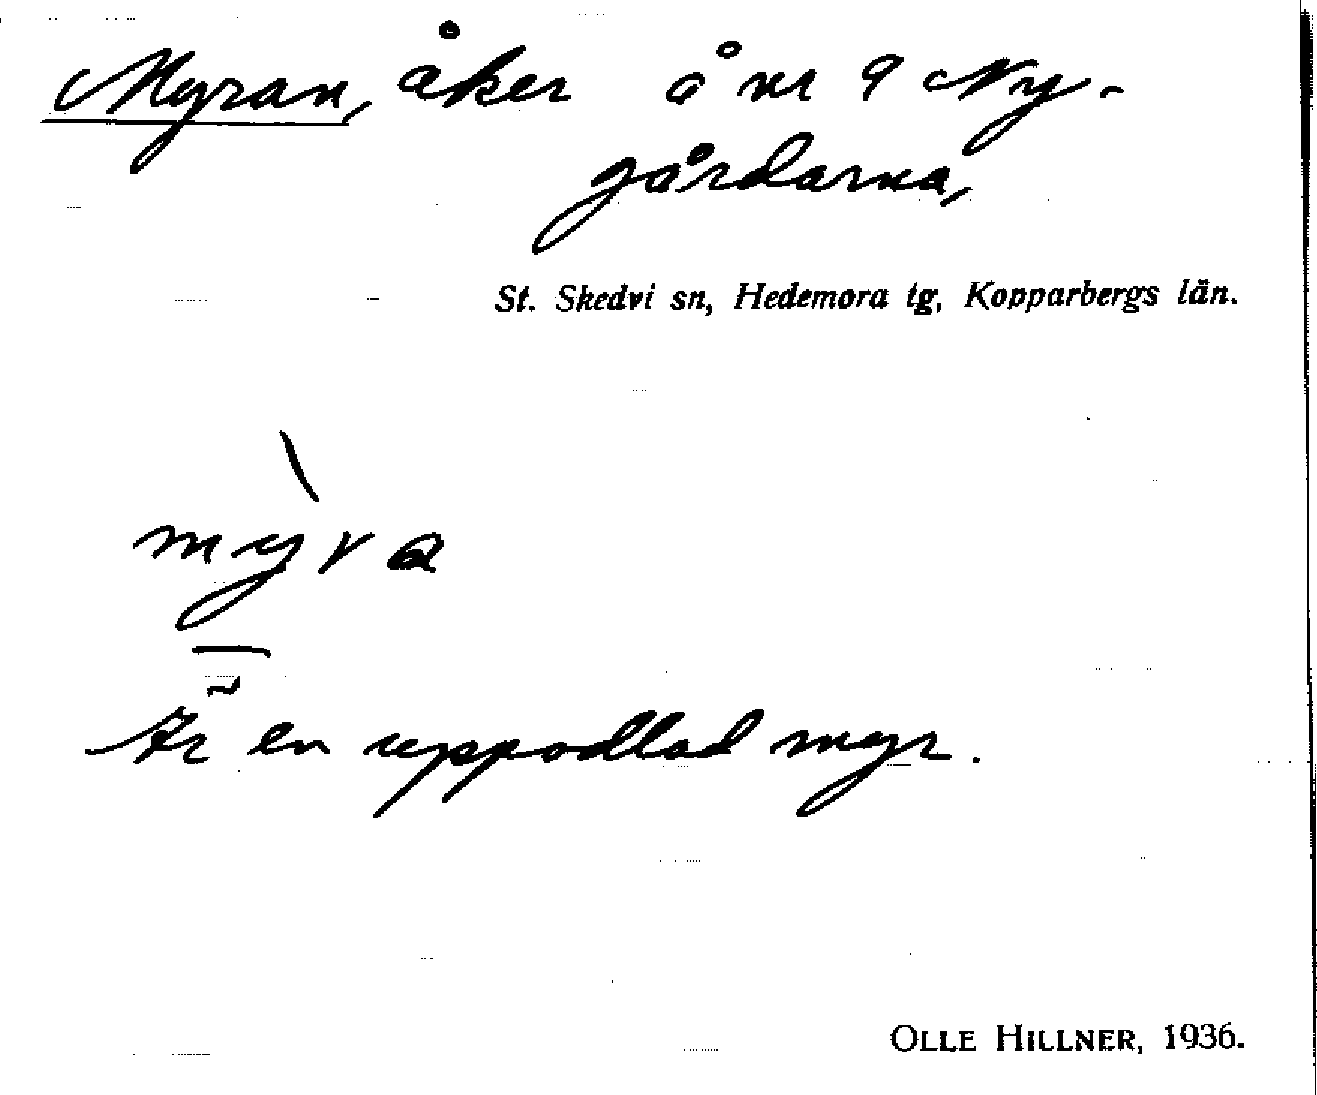 Myran, åker å nr 9 Ny-
gårdarna,
St. Skedvi sn, Hedemora tg, Kopparbergs län.
mỳra
Är en uppodlad myr.
OLLE HILLNER, 1936.